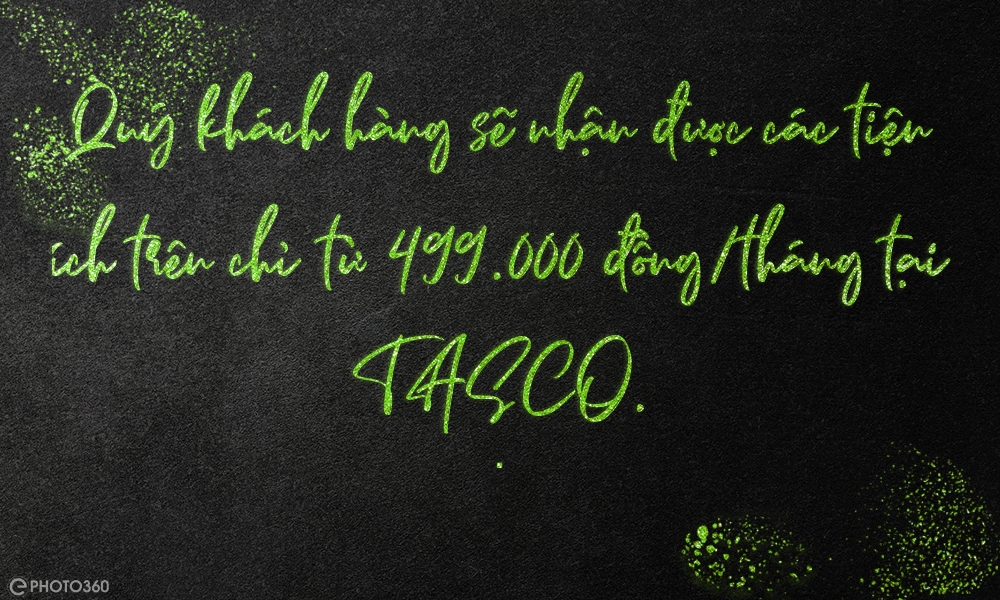 Quý khách hàng sẽ nhận được các tiện
ích trên chỉ từ 499.000 đồng/tháng tại
TASCO.
.
ePHOTO360